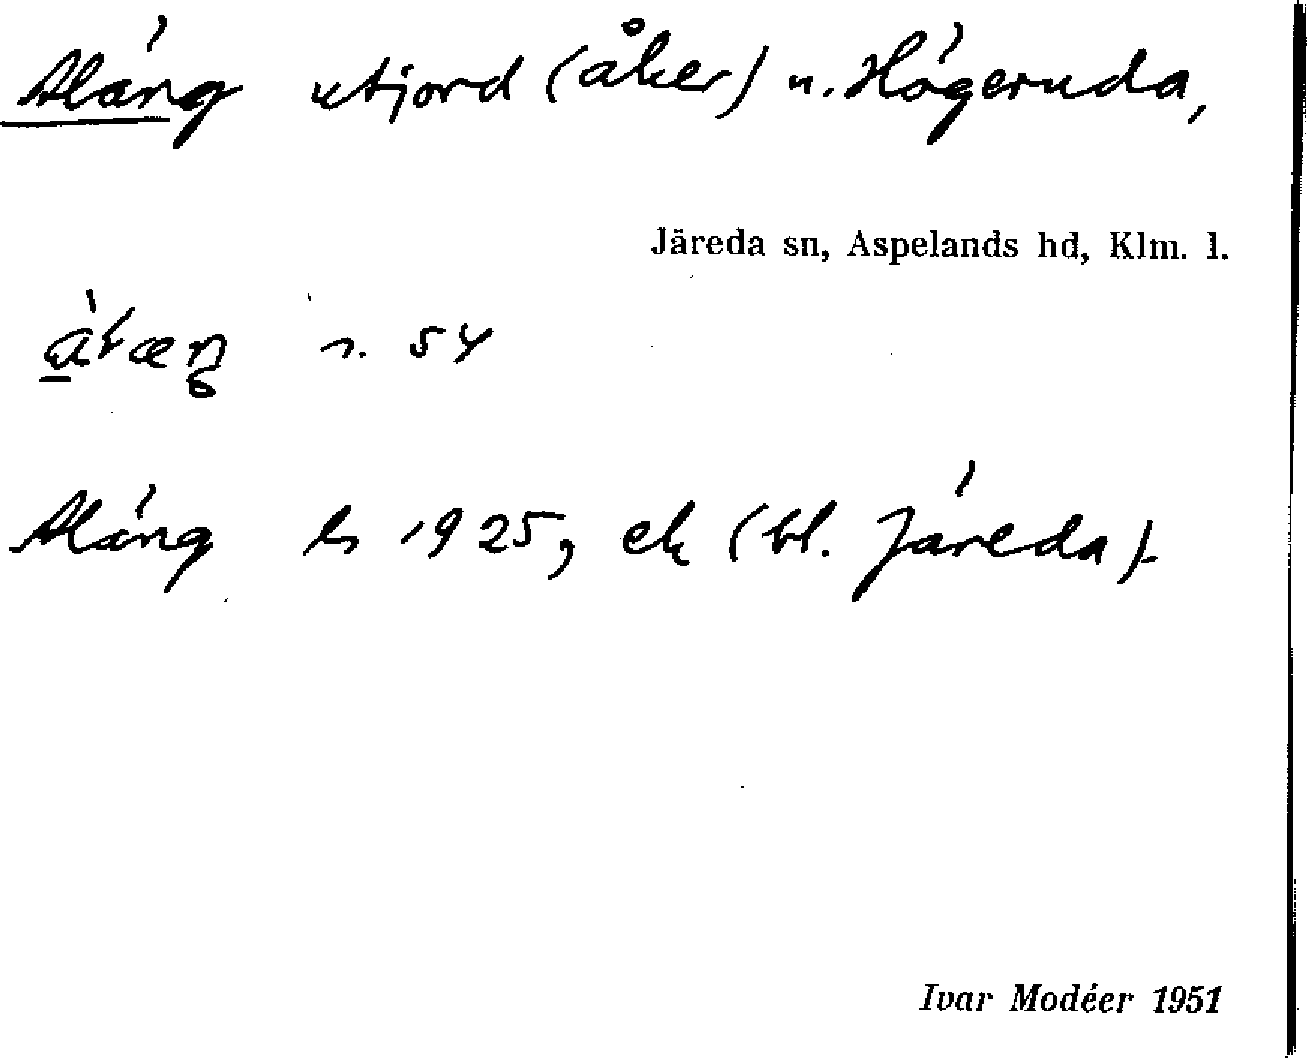 Aläng utjord (åker) u. Högeruda,
Järeda sn, Aspelands hd, Klm. l.
n. 54
Aläng ls 1925, ek (bl. Järeda).
Ivar Modéer 1951